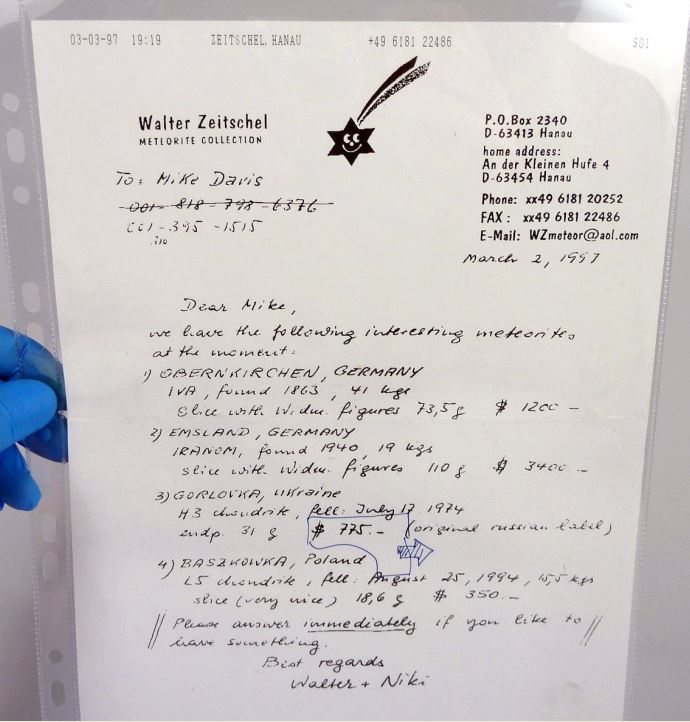 03-03-97 19:19 ZEITSCHEL, HANAU +49 6181 22486 S01
Walter Zeitschel
METEORITE COLLECTION
P.O.Box 2340
D-63413 Hanau
home address:
An der Kleinen Hufe 4
D-63454 Hanau
Phone: xx49 6181 20252
FAX: xx49 6181 22486
E-Mail: WZmeteor@aol.com
To: Mike Davis
001-818-798-6376
001-395-1515
310
March 2, 1997
Dear Mike,
we have the following interesting meteorites
at the moment:
1) OBERNKIRCHEN, GERMANY
IVA, found 1863, 41 kgs
slice with Widm. figures 73,5g $ 1200 -
2) EMSLAND, GERMANY
IRANOM, found 1940, 19 kgs
slice with Widm. figures 110 g $ 3400. -
3) GORLOVKA, Ukraine
H3 chondrite, fell: July 17 1974
endp. 31 g $ 775.- (original russian label)
4) BASZKOWKA, Poland
L5 chondrite, fell: August 25, 1994, 15,5 kgs
slice (very nice) 18,6 g $ 350.-
// Please answer immediately if you like to //
have something.
Best regards
Walter + Niki